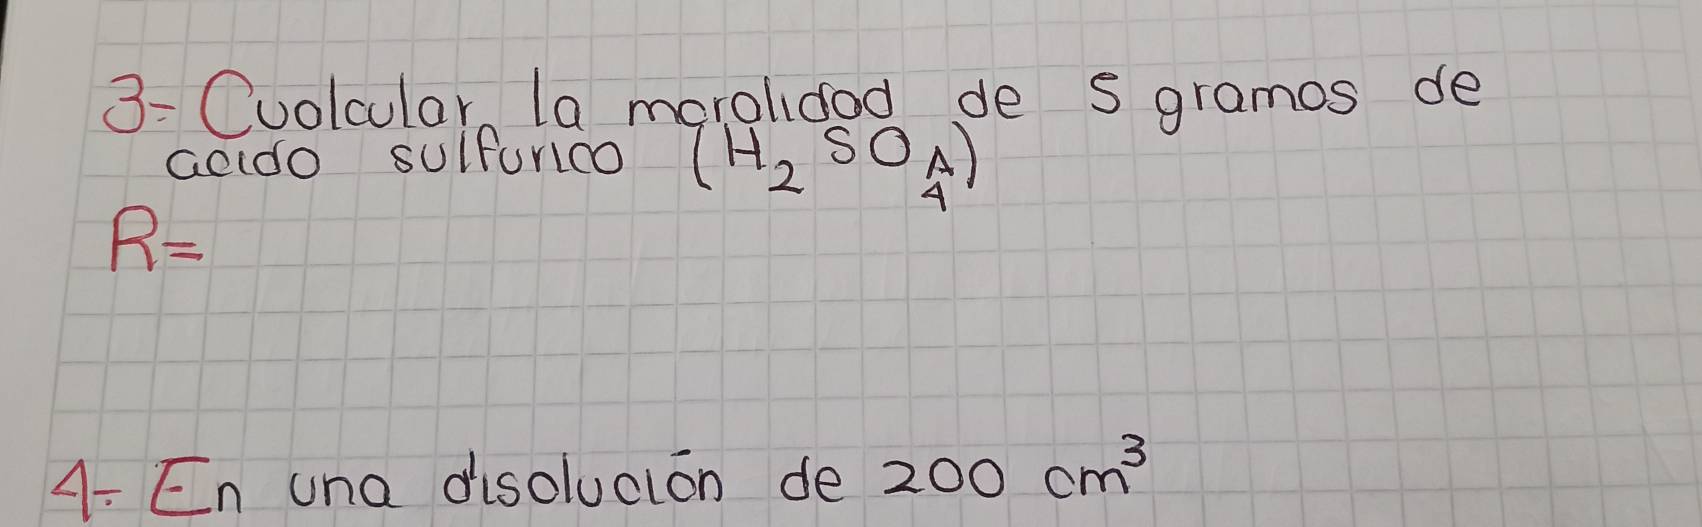 3= Cuolcular la morolidod de 5 gramos de
acido sulfurico (H₂ SO₄)
4
R=
4÷ En una disolución de 200 cm³